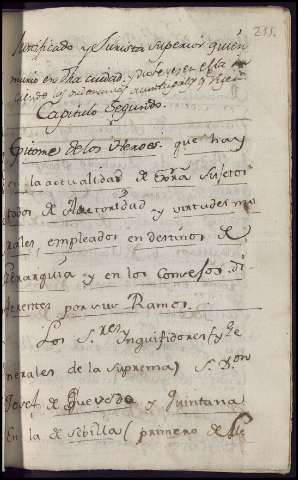 255.
Justificado y Jurista superior quien
murio en dha ciudad, y
Capitulo Segundo.
Epitome de los Heroes que hay
en la actualidad de Sujetos
todos de Autoridad y virtudes mo
rales, empleados en destinos de
Gerarquia y en los Consejos di
ferentes por sus Ramos.
Los S.res Ynquisidores (y Ge
nerales de la suprema) S. D.on
Josef de Quevedo y Quintana
En la de Sebilla (primero de